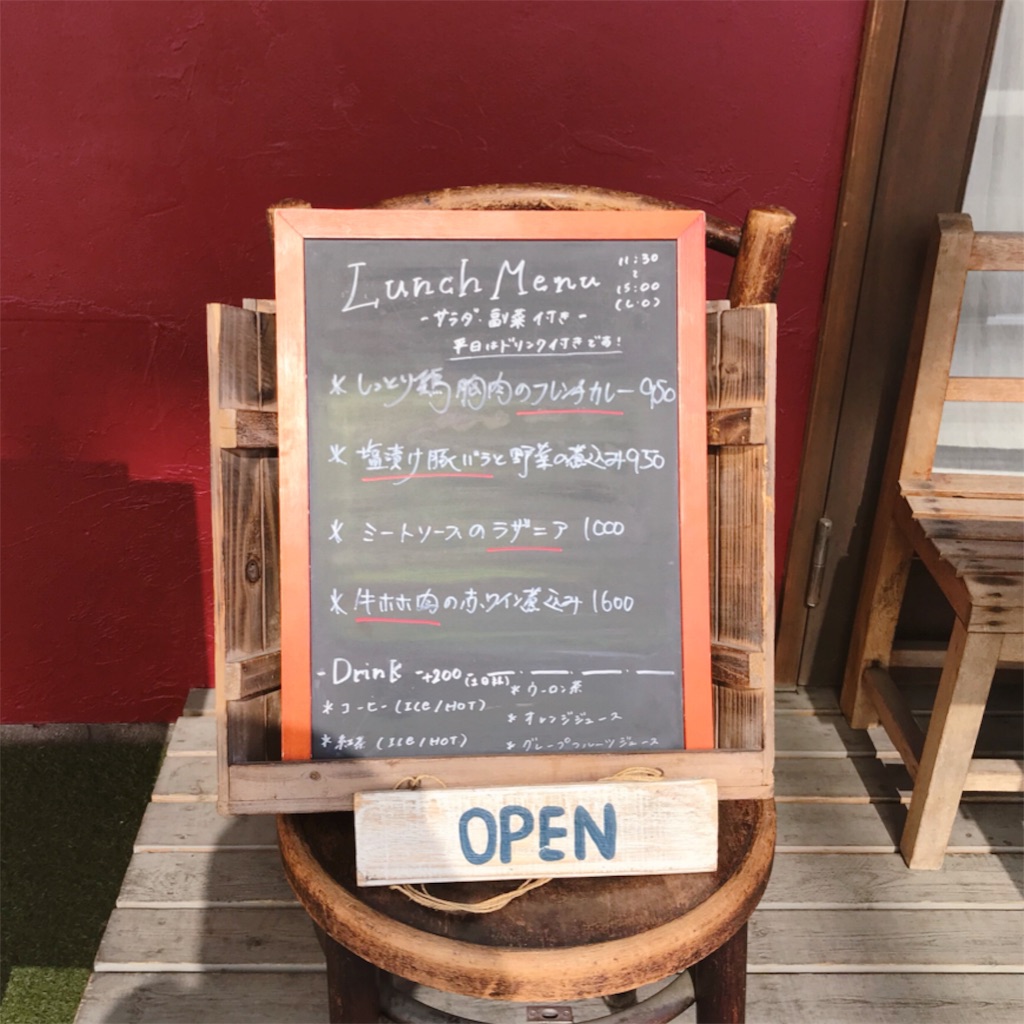 Lunch Menu
11:30
~
15:00
(L.O)
-サラダ・副菜付き-
平日はドリンク付きです!
* しっとり鶏胸肉のフレンチカレー 950
* 塩漬け豚バラと野菜の煮込み 950
* ミートソースのラザニア 1000
* 牛ホホ肉の赤ワイン煮込み 1600
-Drink -+200 (土日祝)
* コーヒー (ICE/HOT)
* 紅茶 (ICE/HOT)
* ウーロン茶
* オレンジジュース
* グレープフルーツジュース
OPEN